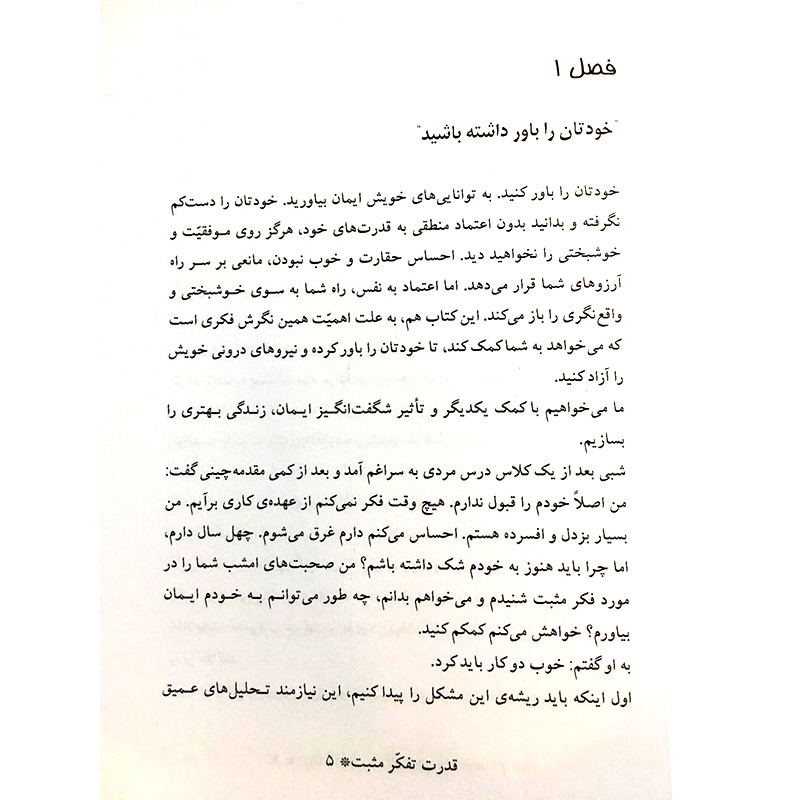 فصل ۱
"خودتان را باور داشته باشید"
خودتان را باور کنید. به توانایی‌های خویش ایمان بیاورید. خودتان را دست‌کم
نگرفته و بدانید بدون اعتماد منطقی به قدرت‌های خود، هرگز روی موفقیّت و
خوشبختی را نخواهید دید. احساس حقارت و خوب نبودن، مانعی بر سر راه
آرزوهای شما قرار می‌دهد. اما اعتماد به نفس، راه شما به سوی خوشبختی و
واقع‌نگری را باز می‌کند. این کتاب هم، به علت اهمیّت همین نگرش فکری است
که می‌خواهد به شما کمک کند، تا خودتان را باور کرده و نیروهای درونی خویش
را آزاد کنید.
ما می‌خواهیم با کمک یکدیگر و تأثیر شگفت‌انگیز ایمان، زندگی بهتری را
بسازیم.
شبی بعد از یک کلاس درس مردی به سراغم آمد و بعد از کمی مقدمه‌چینی گفت:
من اصلاً خودم را قبول ندارم. هیچ وقت فکر نمی‌کنم از عهده‌ی کاری برآیم. من
بسیار بزدل و افسرده هستم. احساس می‌کنم دارم غرق می‌شوم. چهل سال دارم،
اما چرا باید هنوز به خودم شک داشته باشم؟ من صحبت‌های امشب شما را در
مورد فکر مثبت شنیدم و می‌خواهم بدانم، چه طور می‌توانم به خودم ایمان
بیاورم؟ خواهش می‌کنم کمکم کنید.
به او گفتم: خوب دو کار باید کرد.
اول اینکه باید ریشه‌ی این مشکل را پیدا کنیم، این نیازمند تحلیل‌های عمیق
قدرت تفکّر مثبت❊ ۵